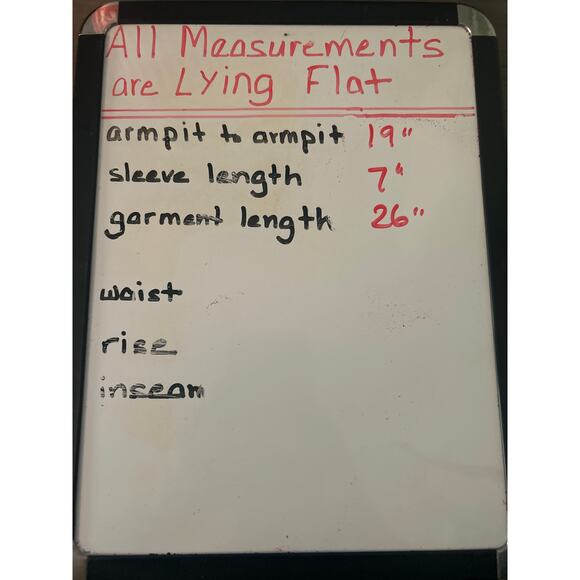 All Measurements
are Lying Flat
armpit to armpit 19"
sleeve length 7"
garment length 26"
waist
rise
inseam